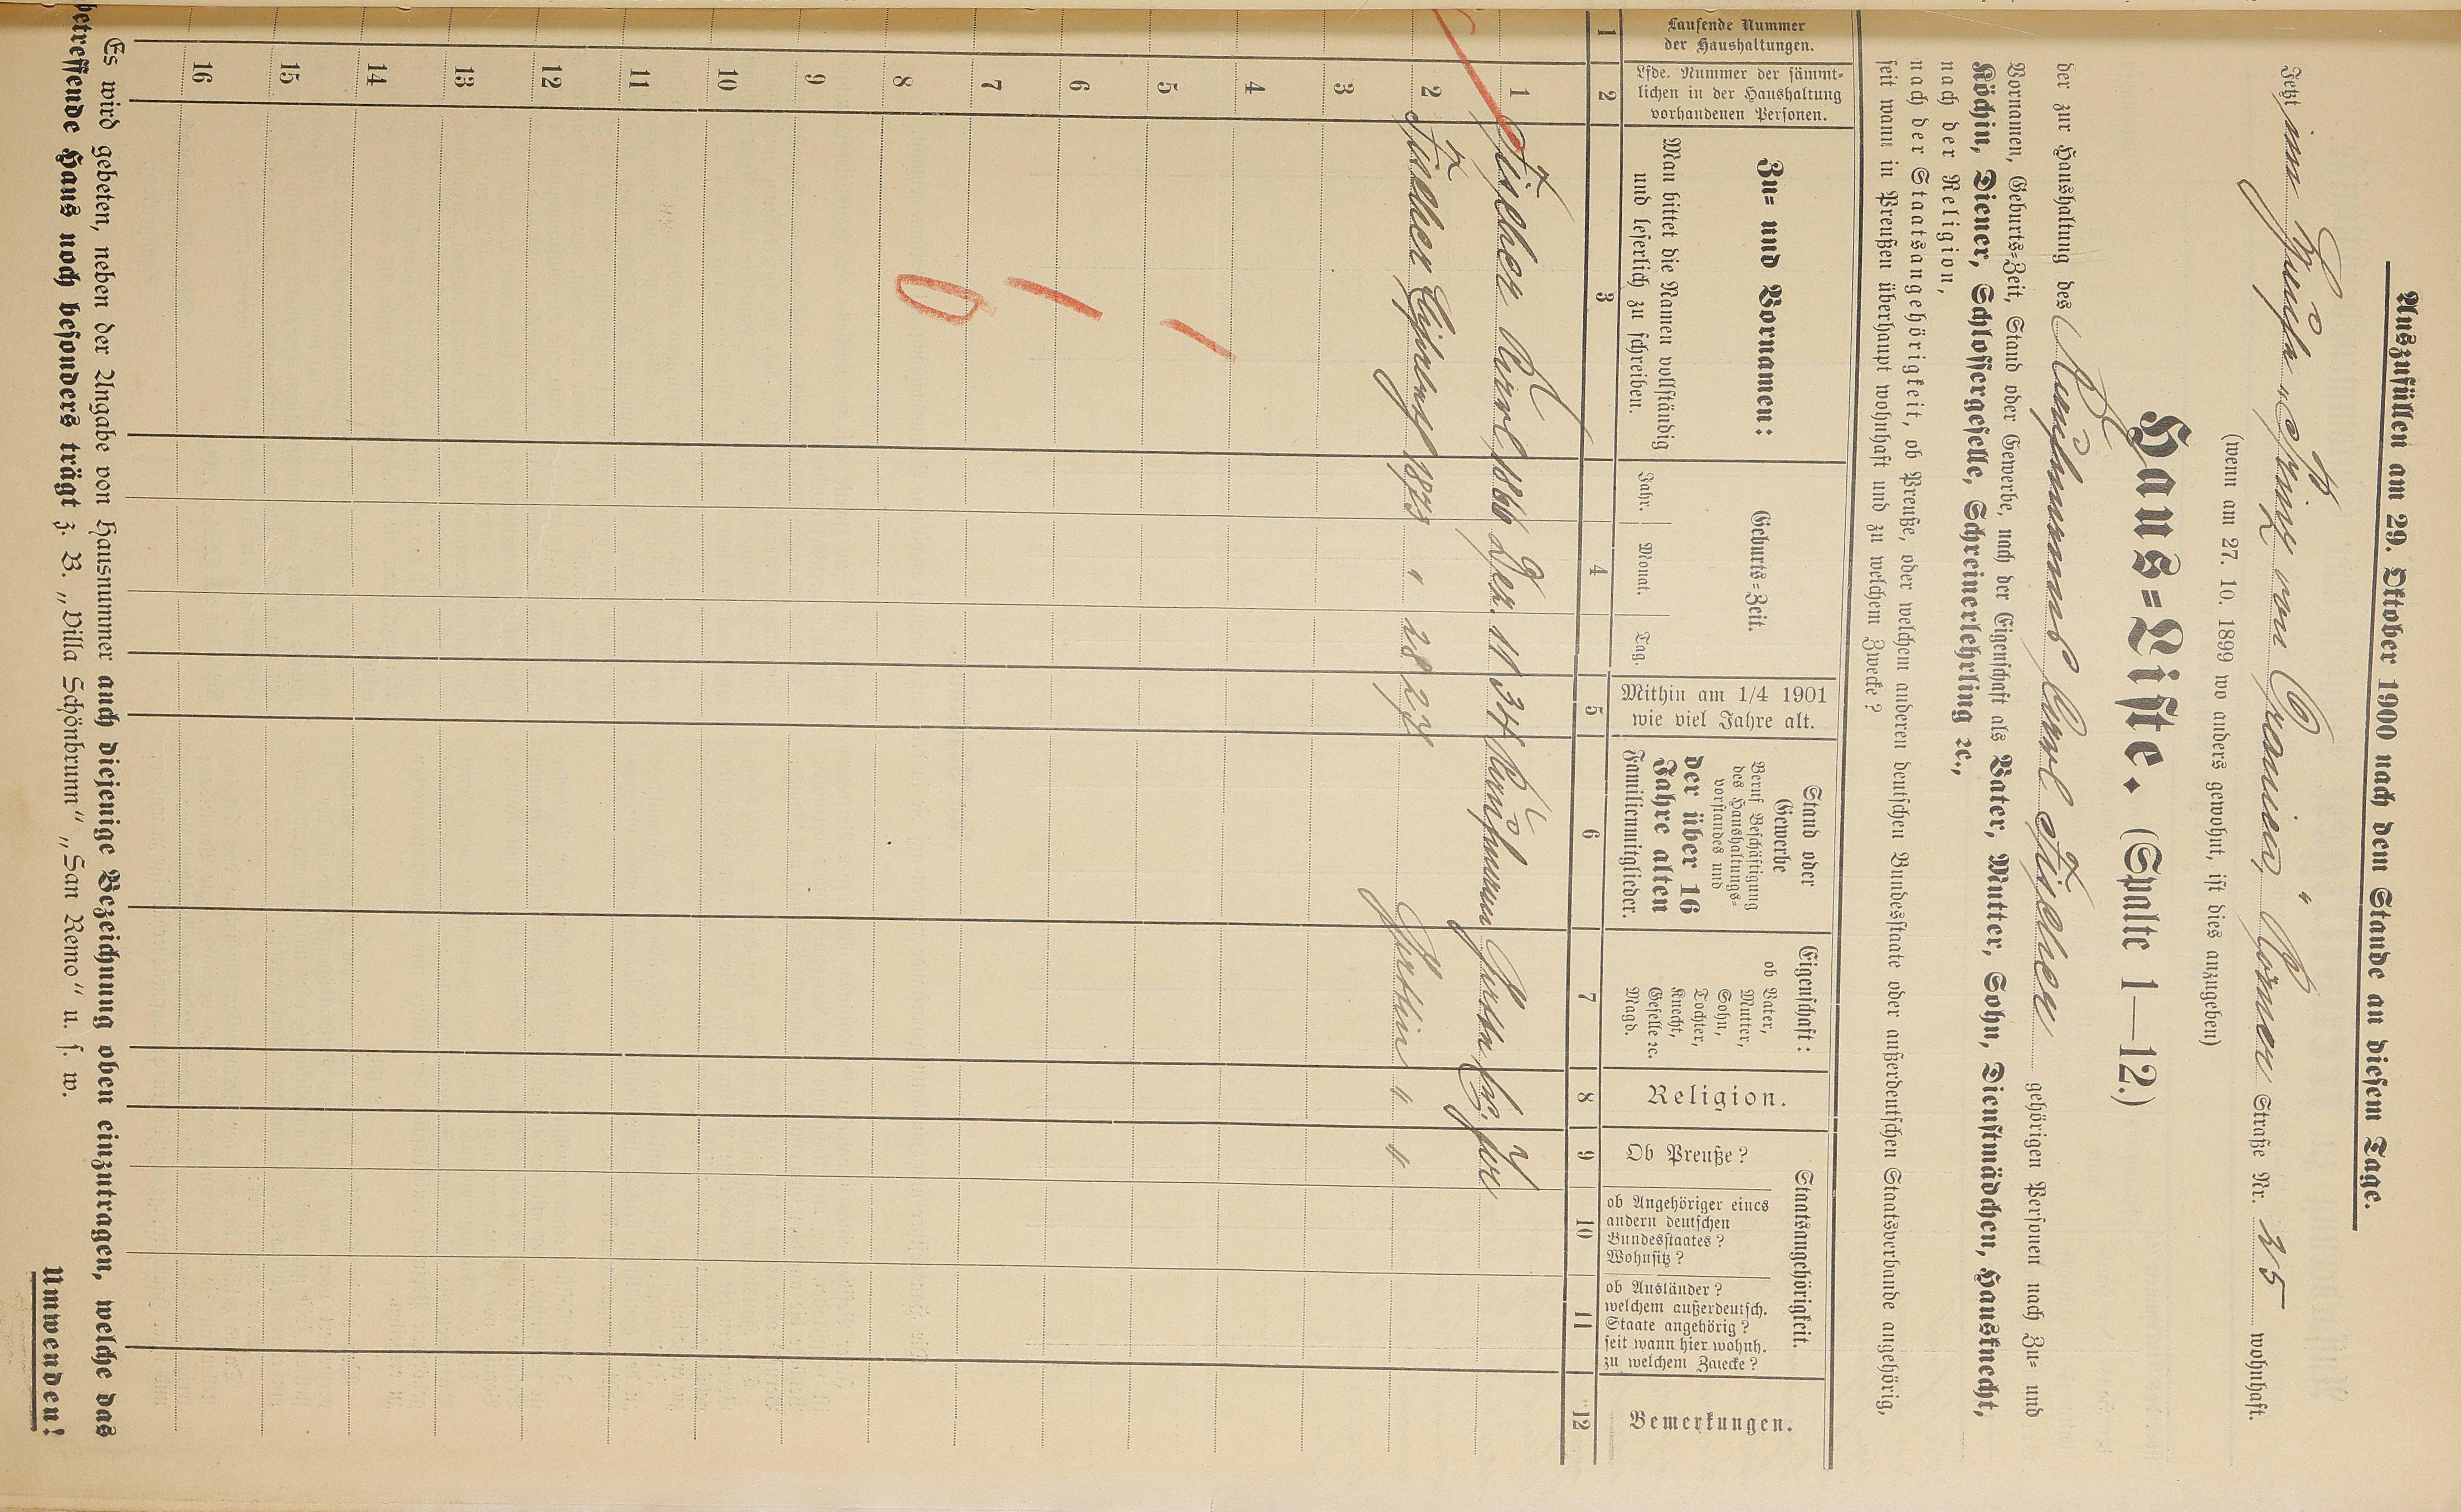 Auszufüllen am 29. Oktober 1900 nach dem Stande an diesem Tage.
Jetzt im Hause „Prinz von Oranien“ Römer Straße Nr. 35 wohnhaft.
(wenn am 27. 10. 1899 wo anders gewohnt, ist dies anzugeben)
Haus=Liste. (Spalte 1—12.)
der zur Haushaltung des Kaufmanns Carl Fischer gehörigen Personen nach Zu= und
Vornamen, Geburts=Zeit, Stand oder Gewerbe, nach der Eigenschaft als Vater, Mutter, Sohn, Dienstmädchen, Hausknecht,
Köchin, Diener, Schlossergeselle, Schreinerlehrling ec.,
nach der Religion,
nach der Staatsangehörigkeit, ob Preuße, oder welchem anderen deutschen Bundesstaate oder außerdeutschen Staatsverbande angehörig,
seit wann in Preußen überhaupt wohnhaft und zu welchem Zwecke?
Laufende Nummer
der Haushaltungen.
Lfde. Nummer der sämmt=
lichen in der Haushaltung
vorhandenen Personen.
Zu= und Vornamen:
Man bittet die Namen vollständig
und leserlich zu schreiben.
Geburts=Zeit.
Jahr. Monat. Tag.
Mithin am 1/4 1901
wie viel Jahre alt.
Stand oder
Gewerbe
Beruf Beschäftigung
des Haushaltungs=
vorstandes und
der über 16
Jahre alten
Familienmitglieder.
Eigenschaft:
ob Vater,
Mutter,
Sohn,
Tochter,
Knecht,
Geselle ec.
Magd.
Religion.
Staatsangehörigkeit.
Ob Preuße?
ob Angehöriger eines
andern deutschen
Bundesstaates?
Wohnsitz?
ob Ausländer?
welchem außerdeutsch.
Staate angehörig?
seit wann hier wohnh.
zu welchem Zwecke?
Bemerkungen.
1 2 3 4 5 6 7 8 9 10 11 12
1 Fischer Karl 1866 Dez. 11 34 Kaufmann Gatte
2 Fischer 1873 " 28 27 Gattin " "
3
4
5
6
7
8
9
10
11
12
13
14
15
16
Es wird gebeten, neben der Angabe von Hausnummer auch diejenige Bezeichnung oben einzutragen, welche das
betreffende Haus noch besonders trägt z. B. „Villa Schönbrunn“ „San Remo“ u. s. w.
Umwenden!